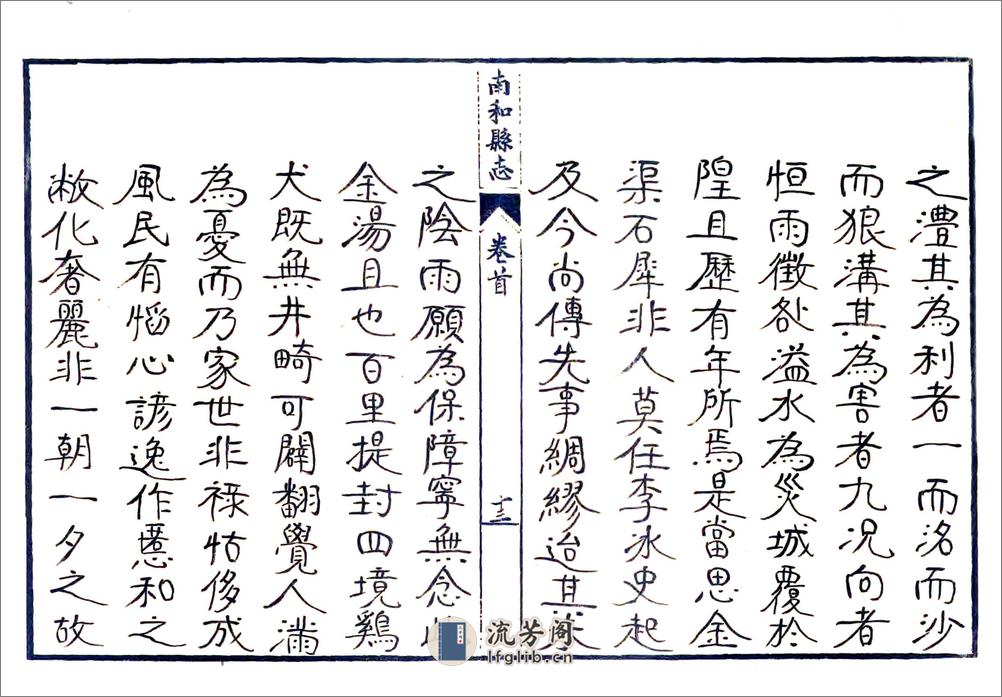 之澧其為利者一而洺而沙
而狼溝其為害者九况向者
恒雨徵咎溢水為災城覆於
隍且歷有年所焉是當思金
渠石犀非人莫任李冰史起
及今尚傳先事綢繆迨其未
南和縣志
卷首
十三
之陰雨願為保障寧無念
金湯且也百里提封四境鷄
犬既無井畸可闢翻覺人滿
為憂而乃家世非祿怙侈成
風民有慆心諺逸作慝和之
敝化奢麗非一朝一夕之故
流芳阁
lfglib.cn